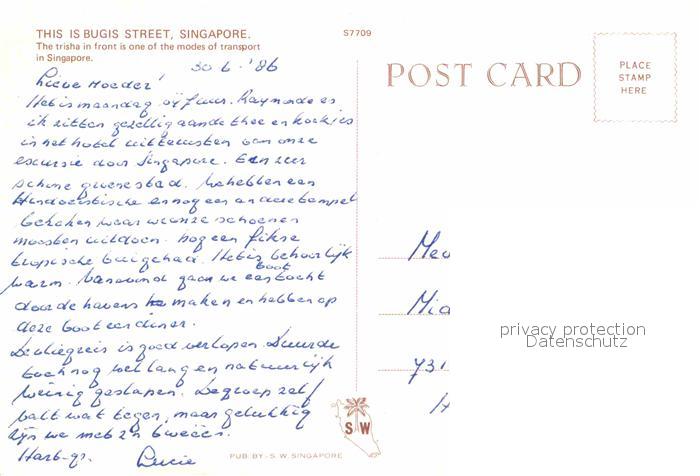 THIS IS BUGIS STREET, SINGAPORE.
S7709
The trisha in front is one of the modes of transport
in Singapore.
30-6-'86
Lieve Moeder!
Het is maandag vijf uur. Raymonde en
ik zitten gezellig aan de thee en koekjes
in het hotel uit te rusten van onze
excursie door Singapore. Een zeer
schone groene stad. We hebben een
Hindoeistische en nog een andere tempel
bekeken waar we onze schoenen
moesten uitdoen. Nog een fikse
tropische bui gehad. Het is behoorlijk
warm. Vanavond gaan we een boottocht
door de haven maken en hebben op
deze boot een diner.
De vliegreis is goed verlopen. Duurde
toch nog wel lang en natuurlijk
weinig geslapen. De groep zelf
valt wat tegen, maar gelukkig
zijn we met z'n tweeën.
Hart. gr. Lucie
POST CARD
PLACE
STAMP
HERE
Mev
Mia
731
privacy protection
Datenschutz
S W
PUB. BY - S. W. SINGAPORE